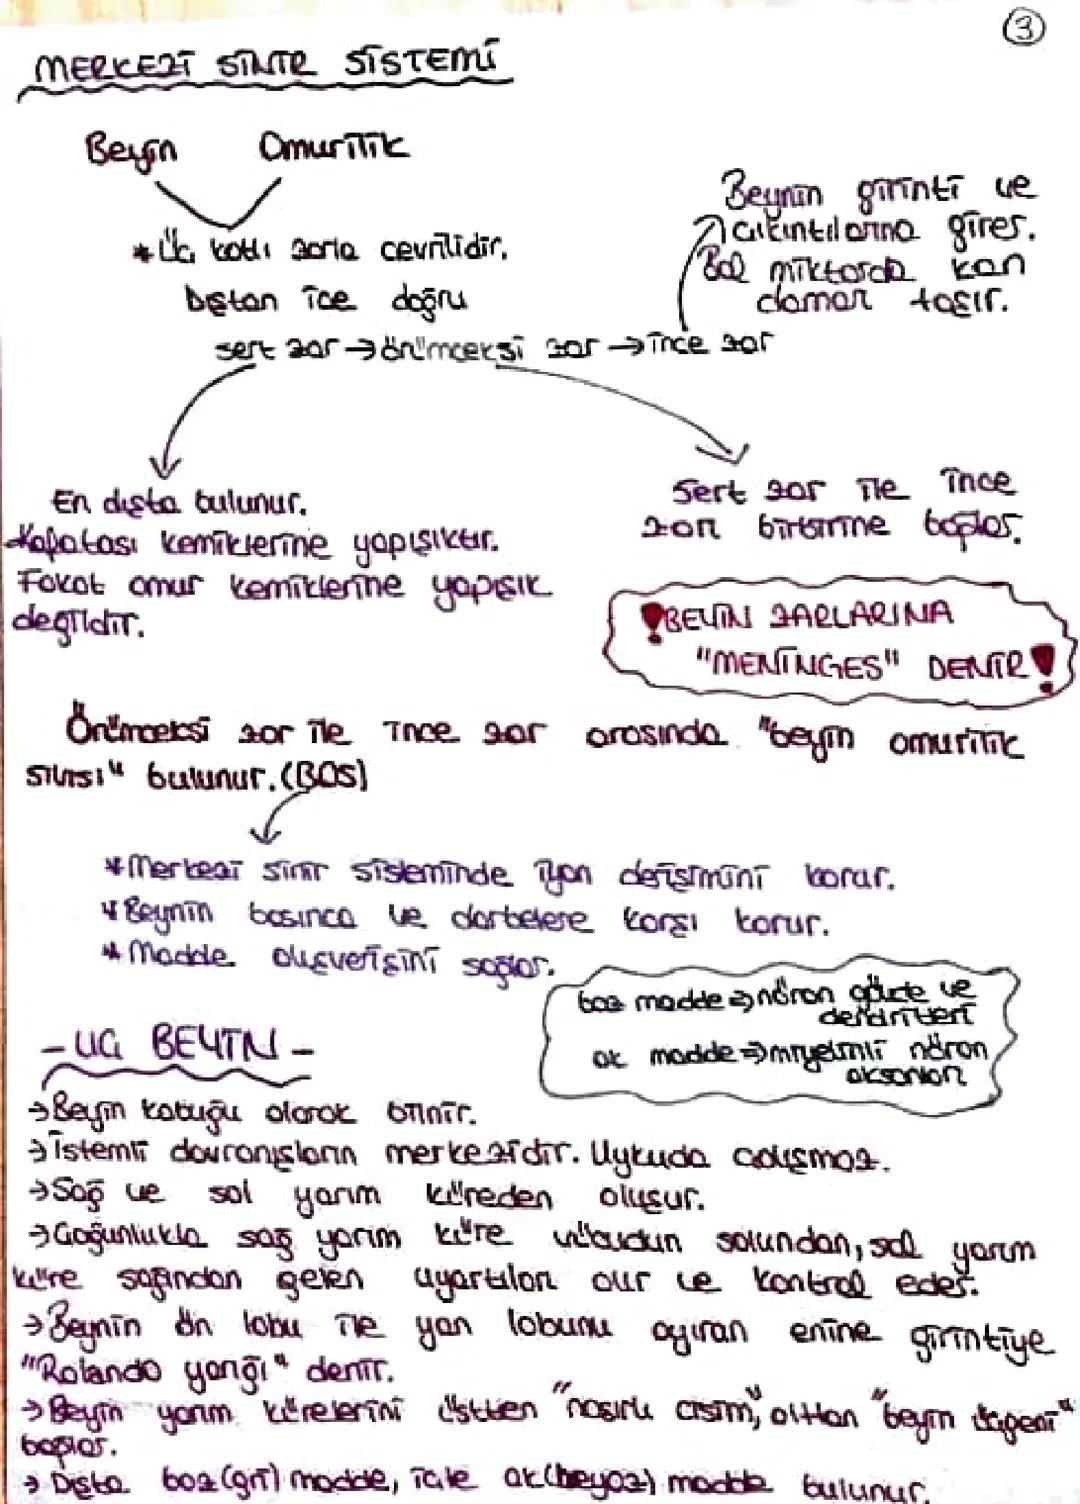 3
MERKEZİ SİNİR SİSTEMİ
Beyin Omurilik
* Üç katlı zarla çevrilidir.
Dıştan içe doğru
sert zar → örümceksi zar → ince zar
Beynin girinti ve
çıkıntılarına girer.
Bol miktarda kan
damarı taşır.
En dışta bulunur.
Kafatası kemiklerine yapışıktır.
Fakat omur kemiklerine yapışık
değildir.
Sert zar ile ince
zarı birbirine bağlar.
! BEYİN ZARLARINA
"MENINGES" DENİR !
Örümceksi zar ile ince zar arasında "beyin omurilik
sıvısı" bulunur. (BOS)
* Merkezi sinir sisteminde iyon derişimini korur.
* Beynin basınca ve darbelere karşı korur.
* Madde alışverişini sağlar.
boz madde ⇒ nöron gövde ve
dendritleri
ak madde ⇒ miyelinli nöron
aksonları
- UÇ BEYİN -
→ Beyin kabuğu olarak bilinir.
→ İstemli davranışların merkezidir. Uykuda çalışmaz.
→ Sağ ve sol yarım küreden oluşur.
→ Çoğunlukla sağ yarım küre vücudun solundan, sol yarım
küre sağından gelen uyartıları alır ve kontrol eder.
→ Beynin ön lobu ile yan lobunu ayıran enine girintiye
"Rolando yarığı" denir.
→ Beyin yarım kürelerini üstten "nasırlı cisim", alttan "beyin üçgeni"
bağlar.
→ Dışta boz (gri) madde, içte ak (beyaz) madde bulunur.